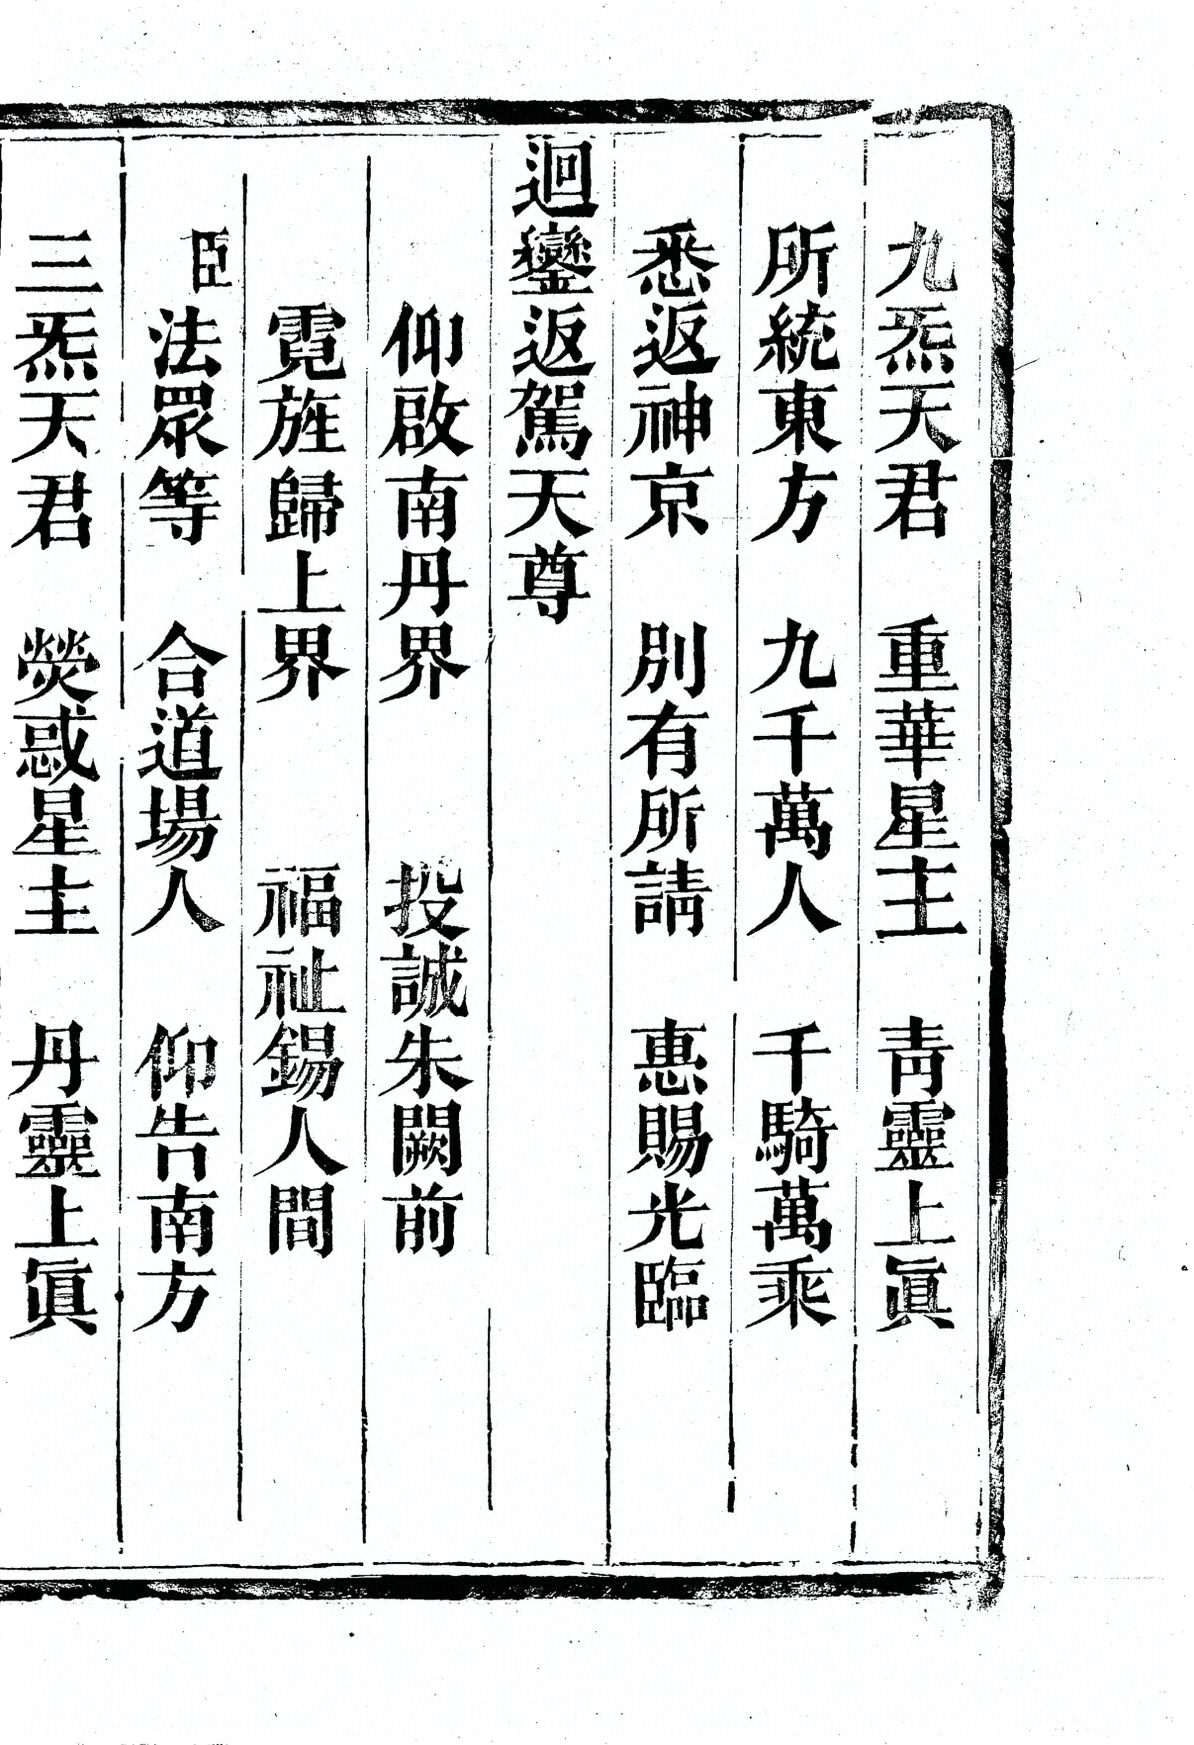 九炁天君　重華星主　青靈上眞
所統東方　九千萬人　千騎萬乘
悉返神京　別有所請　惠賜光臨
迴鑾返駕天尊
仰啟南丹界　投誠朱闕前
霓旌歸上界　福祉錫人間
臣法眾等　合道場人　仰告南方
三炁天君　熒惑星主　丹靈上眞